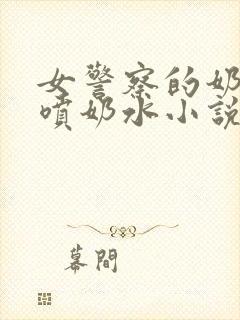 女警察的奶
噴奶水小説
幕間